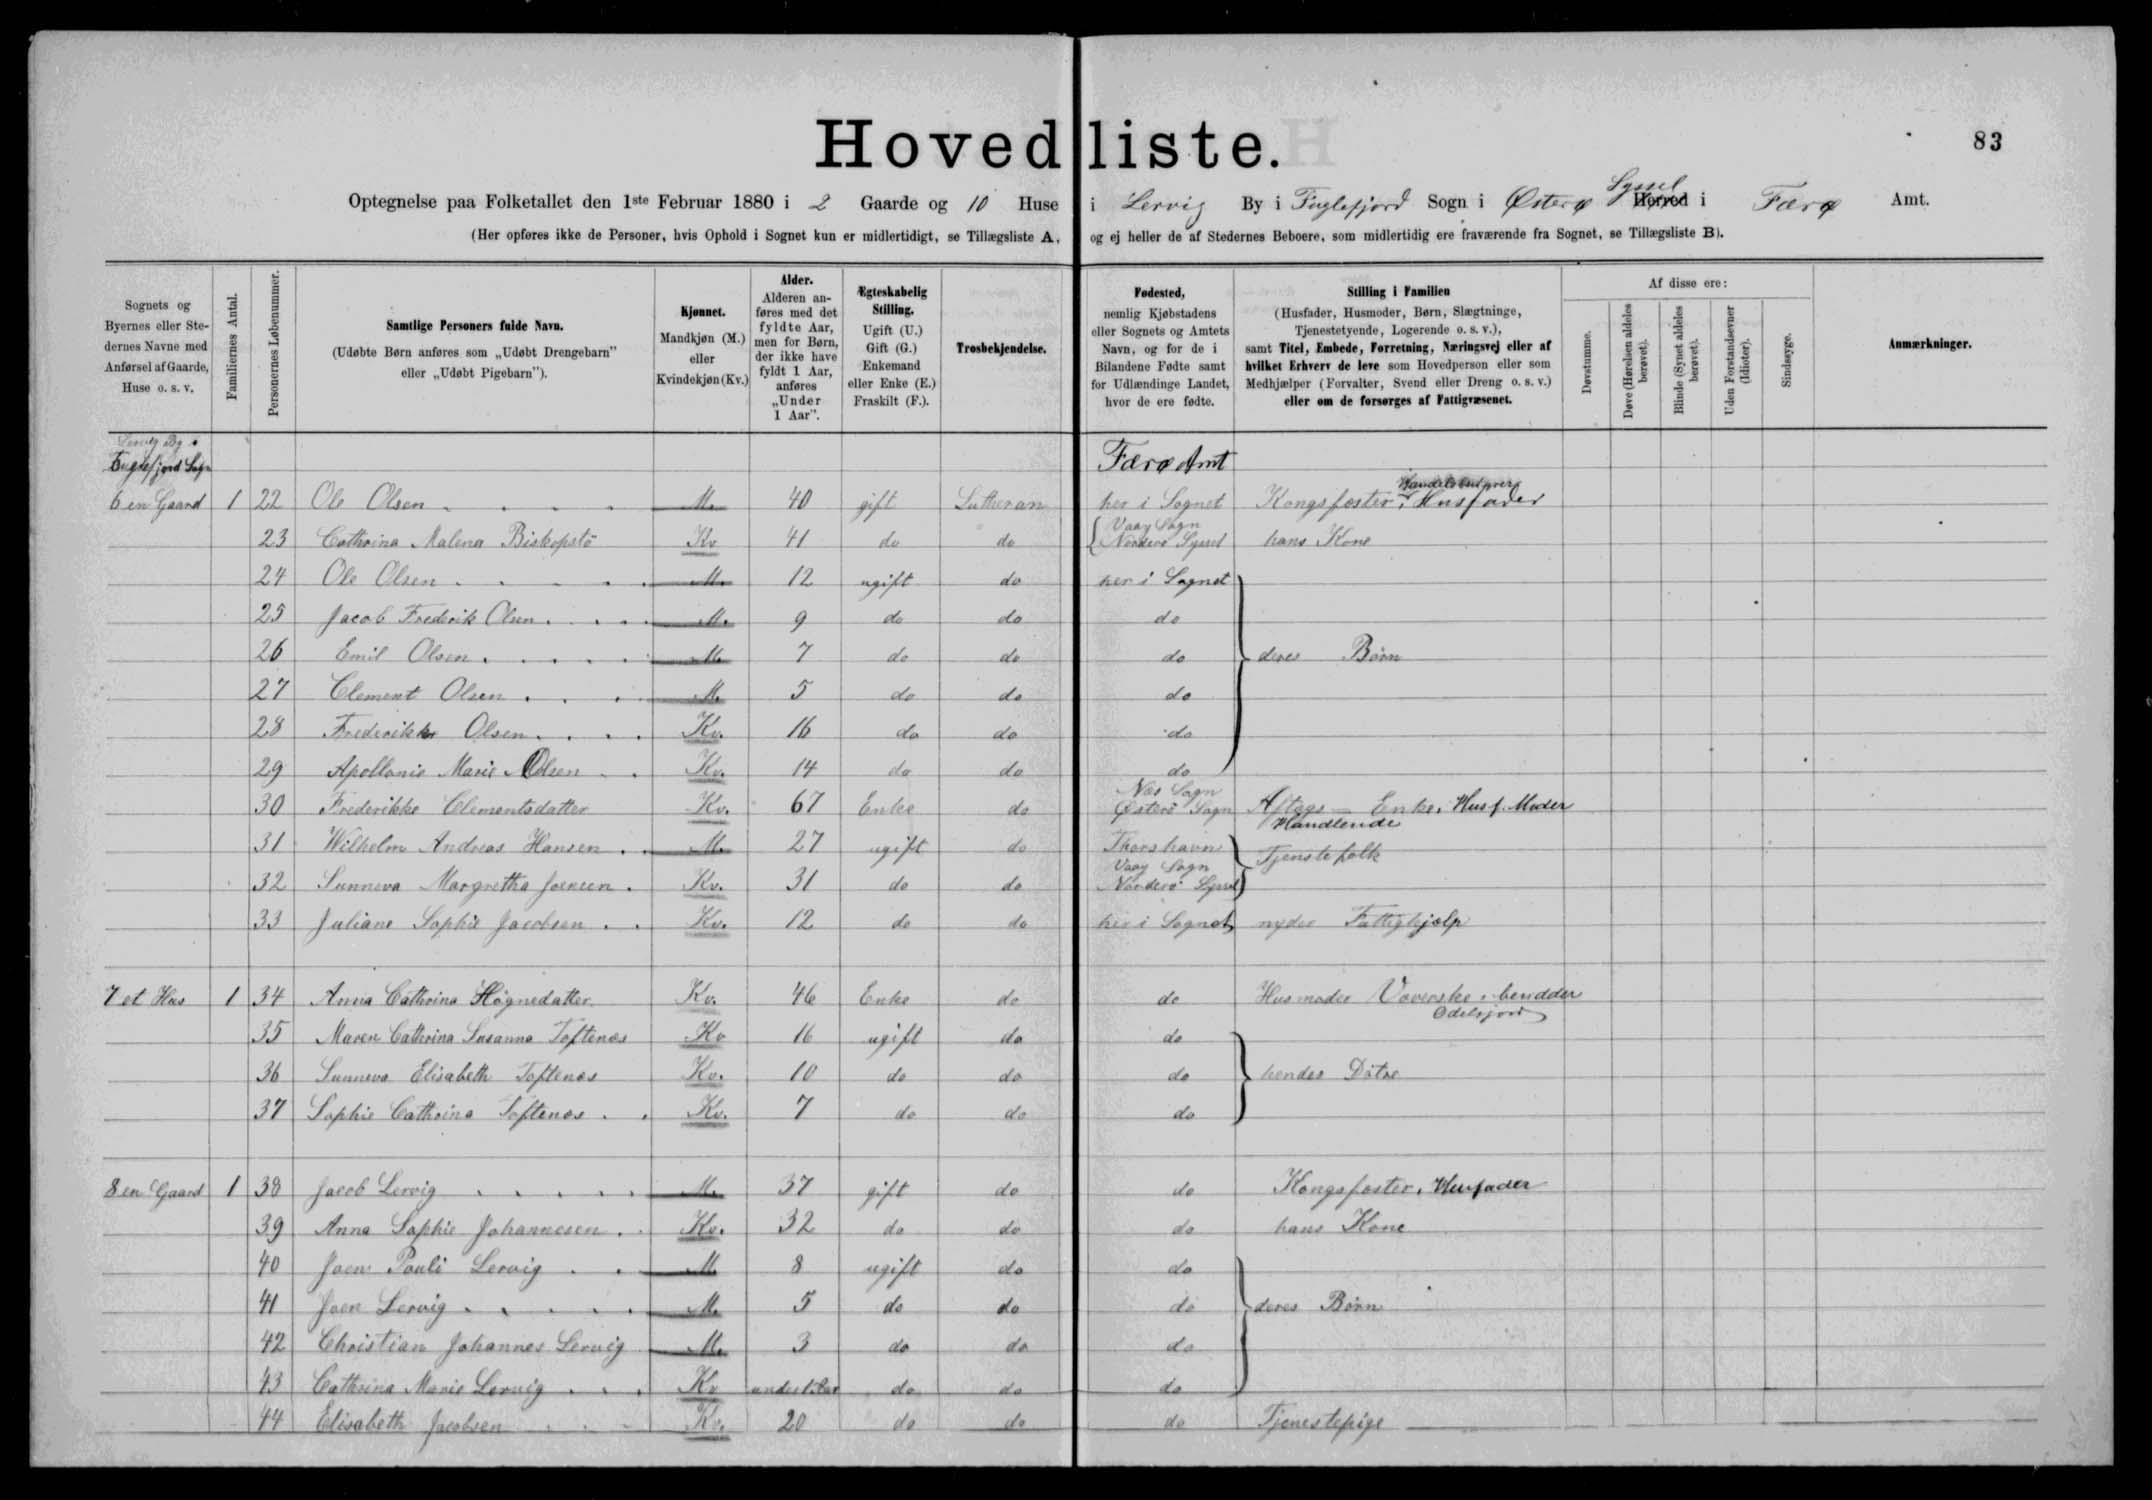 Hovedliste.
83
Optegnelse paa Folketallet den 1ste Februar 1880 i 2 Gaarde og 10 Huse i Lervig By i Fuglefjord Sogn i Østerø Syssel Herred i Færø Amt.
(Her opføres ikke de Personer, hvis Ophold i Sognet kun er midlertidigt, se Tillægsliste A, og ej heller de af Stedernes Beboere, som midlertidig ere fraværende fra Sognet, se Tillægsliste B).
Sognets og Byernes eller Stedernes Navne med Anførsel af Gaarde, Huse o. s. v.
Familiernes Antal.
Personernes Løbenummer.
Samtlige Personers fulde Navn.
(Udøbte Børn anføres som „Udøbt Drengebarn” eller „Udøbt Pigebarn”).
Kjønnet.
Mandkjøn (M.) eller Kvindekjøn (Kv.)
Alder.
Alderen anføres med det fyldte Aar, men for Børn, der ikke have fyldt 1 Aar, anføres „Under 1 Aar”.
Ægteskabelig Stilling.
Ugift (U.) Gift (G.) Enkemand eller Enke (E.) Fraskilt (F.).
Trosbekjendelse.
Fødested,
nemlig Kjøbstadens eller Sognets og Amtets Navn, og for de i Bilandene Fødte samt for Udlændinge Landet, hvor de ere fødte.
Stilling i Familien
(Husfader, Husmoder, Børn, Slægtninge, Tjenestetyende, Logerende o. s. v.),
samt Titel, Embede, Forretning, Næringsvej eller af hvilket Erhverv de leve som Hovedperson eller som Medhjælper (Forvalter, Svend eller Dreng o. s. v.) eller om de forsørges af Fattigvæsenet.
Af disse ere:
Døvstumme.
Døve (Hørelsen aldeles berøvet).
Blinde (Synet aldeles berøvet).
Uden Forstandsevner (Idioter).
Sindssyge.
Anmærkninger.
Lervig By i
Fuglefjord Sogn
Færø Amt
6 en Gaard 1 22 Ole Olsen M. 40 gift Lutheran her i Sognet Kongsfæster, Husfader
23 Cathrina Malena Biskopstö Kv 41 do do Vaag Sogn Norderö Syssel hans Kone
24 Ole Olsen M. 12 ugift do her i Sognet
25 Jacob Frederik Olsen M. 9 do do do
26 Emil Olsen M. 7 do do do deres Börn
27 Clement Olsen M. 5 do do do
28 Frederikke Olsen Kv. 16 do do do
29 Apollonie Marie Olsen Kv. 14 do do do
30 Frederikke Clementsdatter Kv. 67 Enke do Næs Sogn Østerö Sogn Aftægs - Enke, Husf. Moder
Handlende
31 Wilhelm Andreas Hansen M. 27 ugift do Thorshavn Tjenstefolk
32 Sunneva Margretha Joensen Kv. 31 do do Vaag Sogn Norderö Syssel
33 Juliane Sophie Jacobsen Kv. 12 do do her i Sognet nyder Fattighjælp
7 et Hus 1 34 Anna Cathrina Högnedatter Kv. 46 Enke do do Husmoder Væverske
Odelsjord
35 Maren Cathrina Susanna Toftenæs Kv 16 ugift do do
36 Sunneva Elisabeth Toftenæs Kv. 10 do do do hendes Dötre
37 Sophie Cathrina Toftenæs Kv. 7 do do do
8 en Gaard 1 38 Jacob Lervig M. 37 gift do do Kongsfæster, Husfader
39 Anna Sophie Johannesen Kv. 32 do do do hans Kone
40 Joen Pauli Lervig M 8 ugift do do
41 Joen Lervig M. 5 do do do deres Börn
42 Christian Johannes Lervig M. 3 do do do
43 Cathrina Marie Lervig Kv under 1 Aar do do do
44 Elisabeth Jacobsen Kv. 20 do do do Tjenestepige